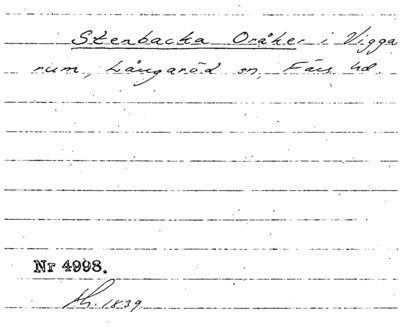 Stenbacka Oråker i Vigga
rum, Långaröd sn, Färs hd.
Nr 4998.
th. 1839